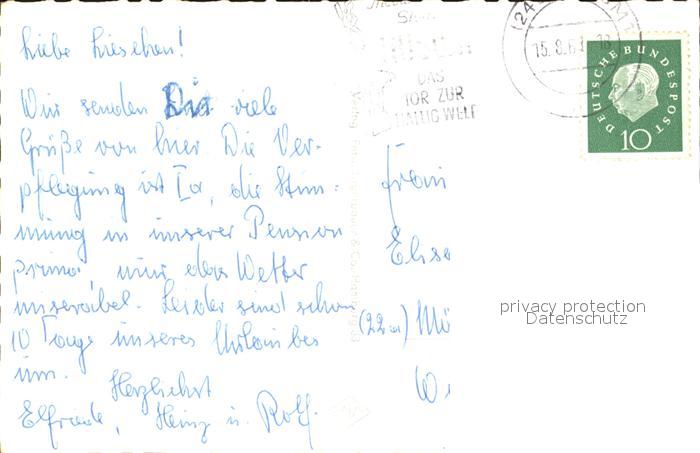 Liebe Lieschen!
Wir senden Dir viele
Grüße von hier. Die Ver-
pflegung ist Ia, die Stim-
mung in unserer Pension
prima, nur das Wetter
miserabel. Leider sind schon
10 Tage unseres Urlaubes
um.
Herzlichst
Elfriede, Heinz u. Rolf.
HUSUM
DAS
TOR ZUR
HALLIG WELT
(24
15.8.61-18
DEUTSCHE BUNDESPOST
10
Frau
Elise
(22a) Mö
privacy protection
Datenschutz